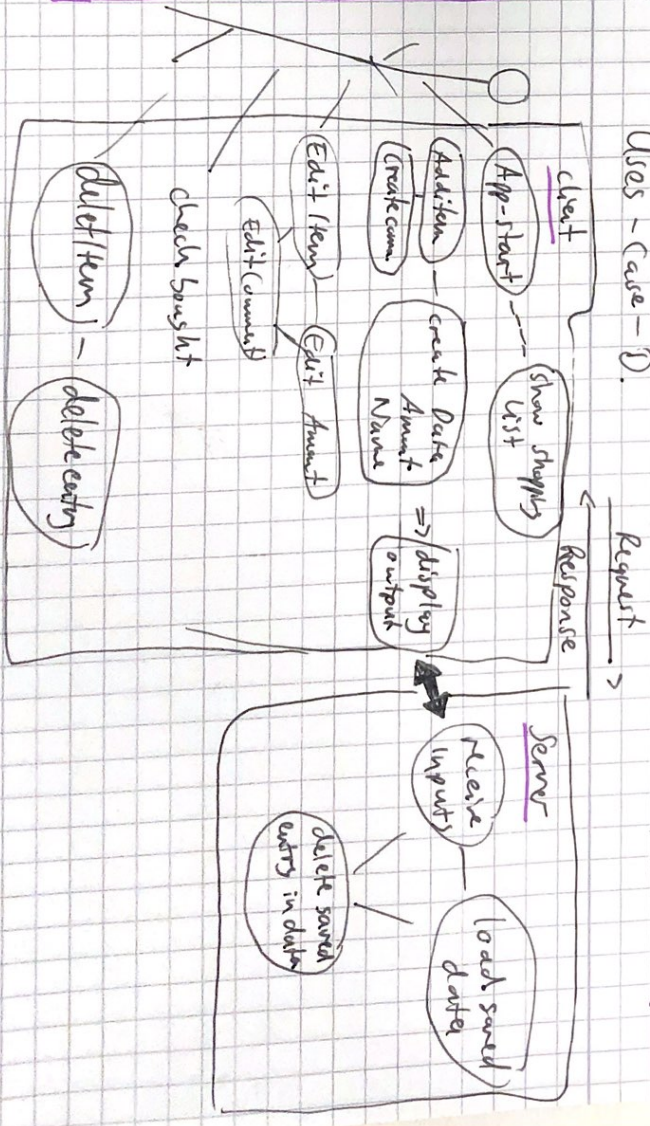 Uses-Case-D.
Request
Response
Client
App-start
Show shopping
List
Add item
create Data
Amount
Name
=> display
output
Create comm
Edit Item
Edit Amount
Edit Comment
check bought
delet Item
delete entry
Server
receive
inputs
load saved
data
delete saved
entry in data